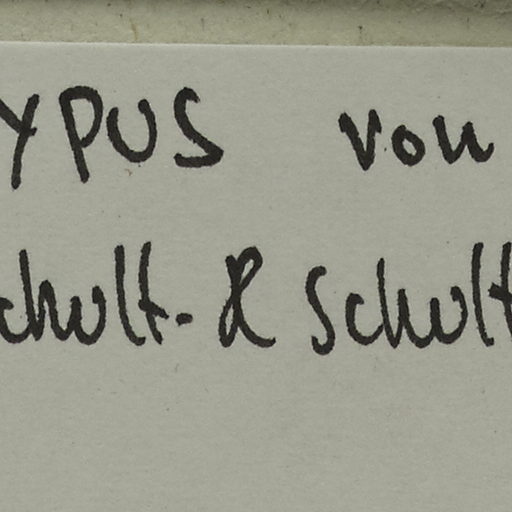 YPUS von
chult. & Schult